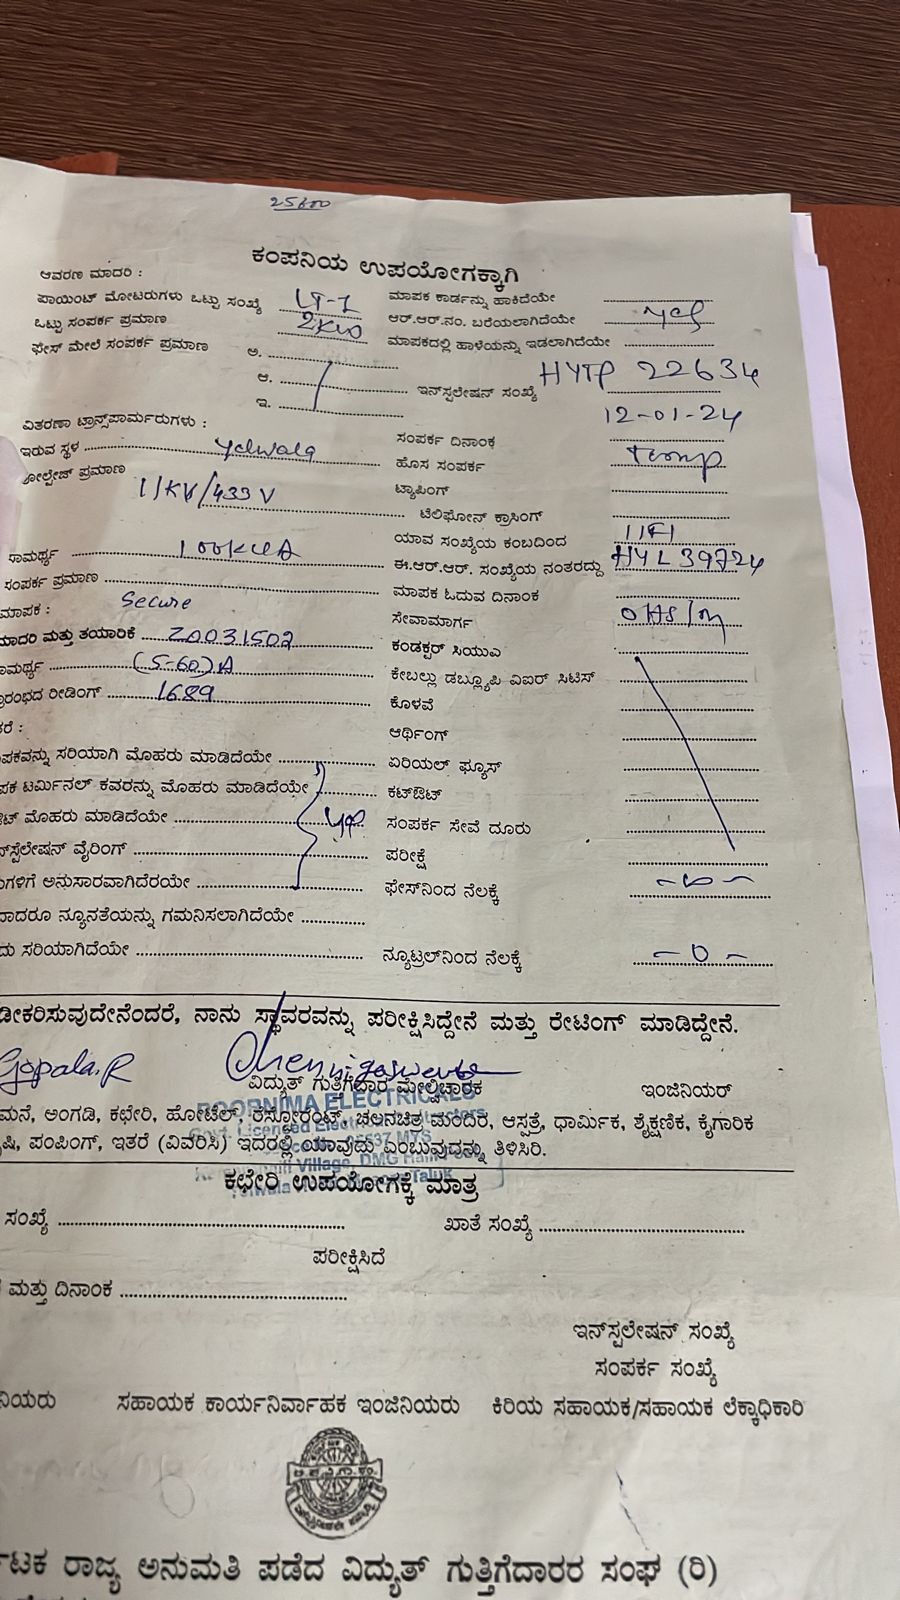 25600
ಕಂಪನಿಯ ಉಪಯೋಗಕ್ಕಾಗಿ
ಆವರಣ ಮಾದರಿ :
ಪಾಯಿಂಟ್ ಮೋಟರುಗಳು ಒಟ್ಟು ಸಂಖ್ಯೆ LT-7 ಮಾಪಕ ಕಾರ್ಡನ್ನು ಹಾಕಿದೆಯೇ
ಒಟ್ಟು ಸಂಪರ್ಕ ಪ್ರಮಾಣ 2KW ಆರ್.ಆರ್.ನಂ. ಬರೆಯಲಾಗಿದೆಯೇ yes
ಫೇಸ್ ಮೇಲೆ ಸಂಪರ್ಕ ಪ್ರಮಾಣ ಅ. ಮಾಪಕದಲ್ಲಿ ಹಾಳೆಯನ್ನು ಇಡಲಾಗಿದೆಯೇ
ಆ. ಇನ್‌ಸ್ಪಲೇಷನ್ ಸಂಖ್ಯೆ HYTP 22634
ಇ.
12-01-24
ವಿತರಣಾ ಟ್ರಾನ್ಸ್‌ಪಾರ್ಮರುಗಳು : ಸಂಪರ್ಕ ದಿನಾಂಕ
ಇರುವ ಸ್ಥಳ Yelwala ಹೊಸ ಸಂಪರ್ಕ Temp
ೋಲ್ಟೇಜ್ ಪ್ರಮಾಣ 11KV/433 V ಟ್ಯಾಪಿಂಗ್
ಟೆಲಿಫೋನ್ ಕ್ರಾಸಿಂಗ್
ಯಾವ ಸಂಖ್ಯೆಯ ಕಂಬದಿಂದ
ಾಮರ್ಥ್ಯ ಈ.ಆರ್.ಆರ್. ಸಂಖ್ಯೆಯ ನಂತರದ್ದು HYL 39724
ಸಂಪರ್ಕ ಪ್ರಮಾಣ ಮಾಪಕ ಓದುವ ದಿನಾಂಕ
ಮಾಪಕ : Secure ಸೇವಾಮಾರ್ಗ
ಮಾದರಿ ಮತ್ತು ತಯಾರಿಕೆ Z0031502 ಕಂಡಕ್ಟರ್ ಸಿಯುಎ
ಾಮರ್ಥ್ಯ (5-60)A ಕೇಬಲ್ಲು ಡಬ್ಲ್ಯೂಪಿ ಎಐರ್ ಸಿಟಿಸ್
ಾರಂಭದ ರೀಡಿಂಗ್ 1689 ಕೊಳವೆ
ರೆ : ಆರ್ಥಿಂಗ್
ಪಕವನ್ನು ಸರಿಯಾಗಿ ಮೊಹರು ಮಾಡಿದೆಯೇ ಏರಿಯಲ್ ಫ್ಯೂಸ್
ಪಕ ಟರ್ಮಿನಲ್ ಕವರನ್ನು ಮೊಹರು ಮಾಡಿದೆಯೇ ಕಟ್‌ಔಟ್
ಟ್ ಮೊಹರು ಮಾಡಿದೆಯೇ ಸಂಪರ್ಕ ಸೇವೆ ದೂರು
ನ್‌ಸ್ಪಲೇಷನ್ ವೈರಿಂಗ್ ಪರೀಕ್ಷೆ
ಗಳಿಗೆ ಅನುಸಾರವಾಗಿದೆರಯೇ ಫೇಸ್‌ನಿಂದ ನೆಲಕ್ಕೆ
ಾದರೂ ನ್ಯೂನತೆಯನ್ನು ಗಮನಿಸಲಾಗಿದೆಯೇ
ದು ಸರಿಯಾಗಿದೆಯೇ ನ್ಯೂಟ್ರಲ್‌ನಿಂದ ನೆಲಕ್ಕೆ -0-
ಡೀಕರಿಸುವುದೇನೆಂದರೆ, ನಾನು ಸ್ಥಾವರವನ್ನು ಪರೀಕ್ಷಿಸಿದ್ದೇನೆ ಮತ್ತು ರೇಟಿಂಗ್ ಮಾಡಿದ್ದೇನೆ.
Gopala.R
ವಿದ್ಯುತ್ ಗುತ್ತಿಗೆದಾರ ಮೇಲ್ವಿಚಾರಕ ಇಂಜಿನಿಯರ್
POORNIMA ELECTRICALS
ಮನೆ, ಅಂಗಡಿ, ಕಛೇರಿ, ಹೋಟೆಲ್, ರೆಸ್ಟೋರೆಂಟ್, ಚಲನಚಿತ್ರ ಮಂದಿರ, ಆಸ್ಪತ್ರೆ, ಧಾರ್ಮಿಕ, ಶೈಕ್ಷಣಿಕ, ಕೈಗಾರಿಕ
ಷಿ, ಪಂಪಿಂಗ್, ಇತರೆ (ವಿವರಿಸಿ) ಇದರಲ್ಲಿ ಯಾವುದು ಎಂಬುವುದನ್ನು ತಿಳಿಸಿರಿ.
ಕಛೇರಿ ಉಪಯೋಗಕ್ಕೆ ಮಾತ್ರ
ಸಂಖ್ಯೆ ಖಾತೆ ಸಂಖ್ಯೆ
ಪರೀಕ್ಷಿಸಿದೆ
ಮತ್ತು ದಿನಾಂಕ
ಇನ್‌ಸ್ಪಲೇಷನ್ ಸಂಖ್ಯೆ
ಸಂಪರ್ಕ ಸಂಖ್ಯೆ
ನಿಯರು ಸಹಾಯಕ ಕಾರ್ಯನಿರ್ವಾಹಕ ಇಂಜಿನಿಯರು ಕಿರಿಯ ಸಹಾಯಕ/ಸಹಾಯಕ ಲೆಕ್ಕಾಧಿಕಾರಿ
ಟಕ ರಾಜ್ಯ ಅನುಮತಿ ಪಡೆದ ವಿದ್ಯುತ್ ಗುತ್ತಿಗೆದಾರರ ಸಂಘ (ರಿ)